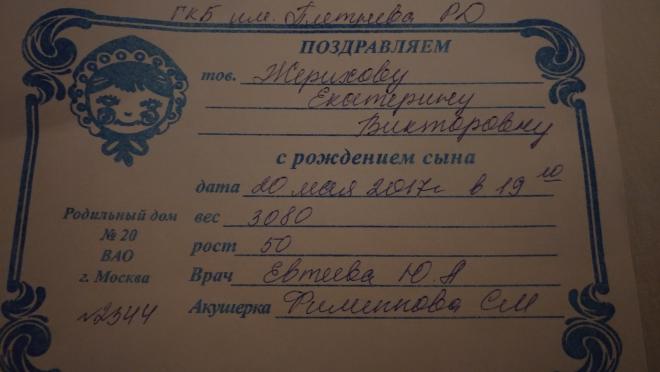 ГКБ им. Плетнева РД
ПОЗДРАВЛЯЕМ
тов. Жерихову
Екатерину
Викторовну
с рождением сына
дата 20 мая 2017г в 19 10
вес 3080
рост 50
Врач Евтеева Ю.А
Акушерка СМ
Родильный дом
№ 20
ВАО
г. Москва
№2344